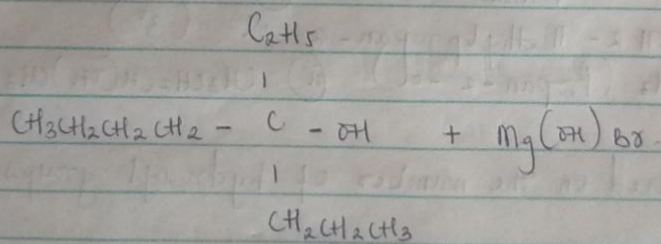 C2H5
|
CH3CH2CH2CH2 - C - OH + Mg(OH)Br
|
CH2CH2CH3